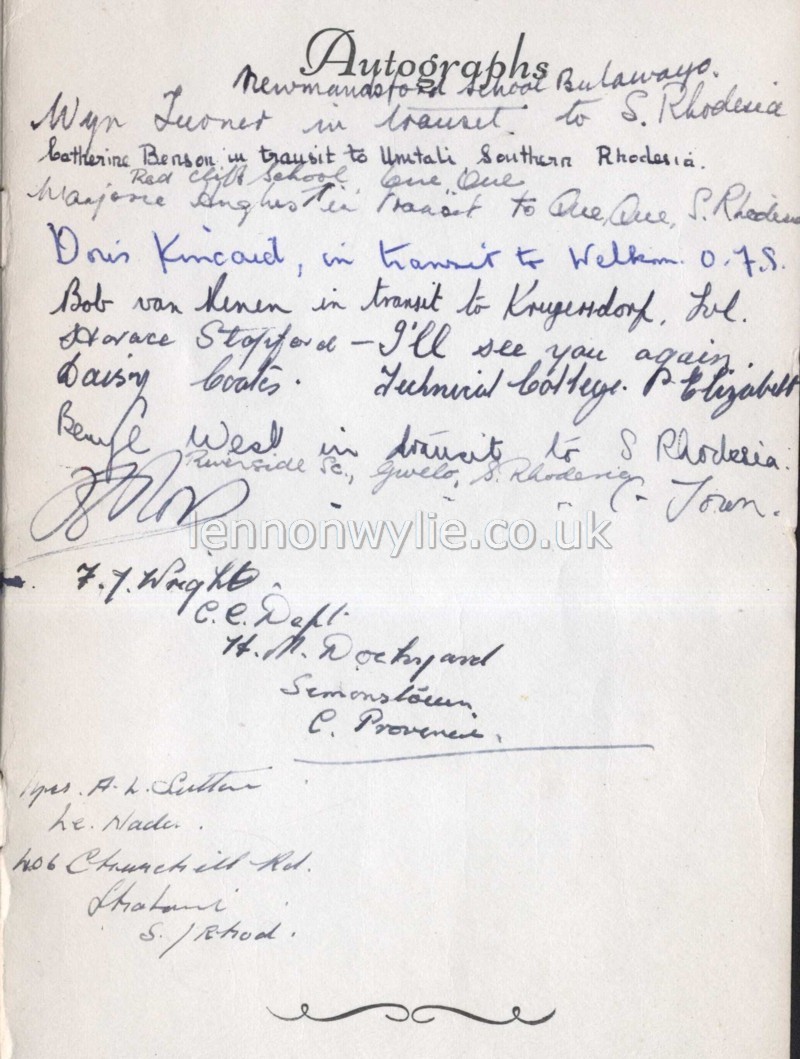 Autographs
Newmansford School Bulawayo.
Wyn Turner in transit to S. Rhodesia
Catherine Benson in transit to Umtali, Southern Rhodesia.
Red Cliff School Que Que
Marjorie in transit to Que, Que, S. Rhodesia
Doris Kincaid, in transit to Welkom. O.F.S.
Bob van in transit to Krugersdorp, Tvl.
Horace Stopford – I'll see you again.
Daisy Coates. Technical College. P. Elizabeth
Beryl West in transit to S Rhodesia.
Riverside Sc., Gwelo, S. Rhodesia
- - - C - Town.
lennonwylie.co.uk
F. J. Wright.
C. E. Dept
H. M. Dockyard
Simonstown
C. Province.
Mrs. A. L. Sutton
406 Churchill Rd.
S. / Rhod.